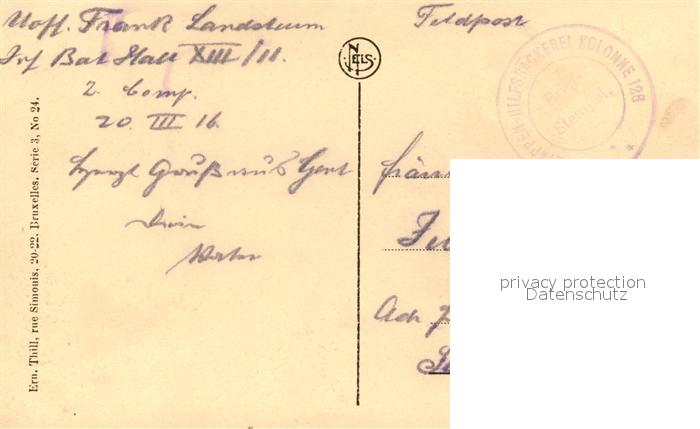 Uoff. Frank Landsturm
Inf Bat Hall XIII/11.
2. Comp.
20. III 16.
Herzl Gruß aus Gent
Dein
Vater
Feldpost
NELS
ETAPPEN-HILFSBÄCKEREI KOLONNE 128
Brief-
Stempel.
Ern. Thill, rue Simonis, 20-22. Bruxelles. Serie 3, No 24.
privacy protection
Datenschutz